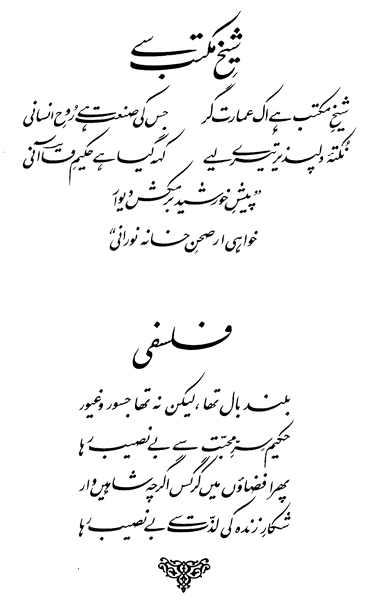 شیخِ مکتب سے
شیخِ مکتب ہے اک عمارت گر جس کی صنعت ہے رُوحِ انسانی
نُکتۂ دلپذیر تیرے لیے کہہ گیا ہے حکیمِ قاآنی
”پیشِ خورشید بر مکش دیوار
خواہی ار صحنِ خانہ نورانی“
فلسفی
بلند بال تھا، لیکن نہ تھا جسور و غیور
حکیم سرِّ محبّت سے بے نصیب رہا
پھرا فضاؤں میں کرگس اگرچہ شاہیں وار
شکارِ زندہ کی لذّت سے بے نصیب رہا